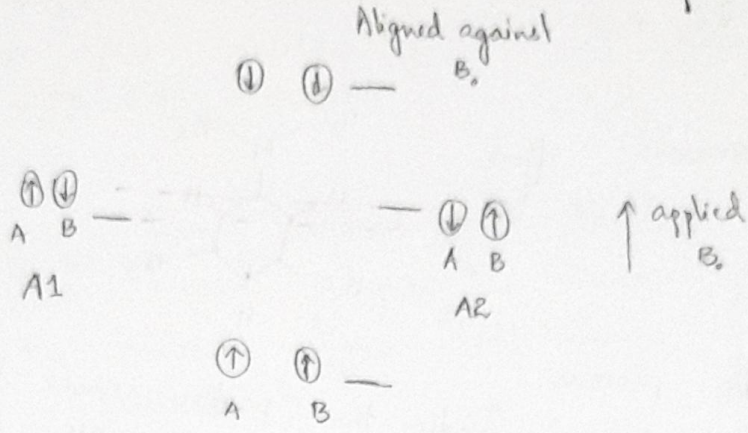 Aligned against
B₀
A B
A1
A B
A2
applied
B₀
A B